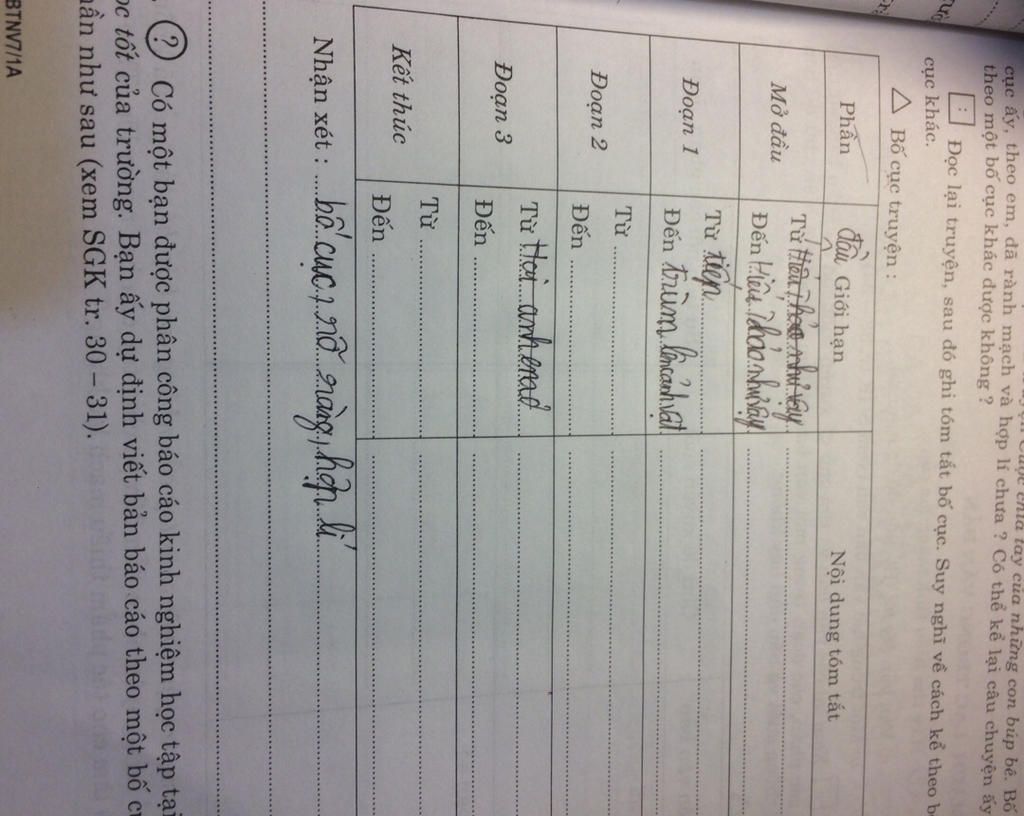 cục ấy, theo em, đã rành mạch và hợp lí chưa ? Có thể kể lại câu chuyện ấy
theo một bố cục khác được không ?
: Đọc lại truyện, sau đó ghi tóm tắt bố cục. Suy nghĩ về cách kể theo
cục khác.
△ Bố cục truyện :
Phần Giới hạn Nội dung tóm tắt
Mở đầu Từ đầu
Đến Hiếu thảo như vậy
Đoạn 1 Từ tiếp
Đến trùm lên cảnh vật
Đoạn 2 Từ
Đến
Đoạn 3 Từ Hai anh em
Đến
Kết thúc Từ
Đến
Nhận xét : bố cục, rõ ràng, hợp lí
? Có một bạn được phân công báo cáo kinh nghiệm học tập tại
học tốt của trường. Bạn ấy dự định viết bản báo cáo theo một bố
phần như sau (xem SGK tr. 30 – 31).
BTNV7/1A